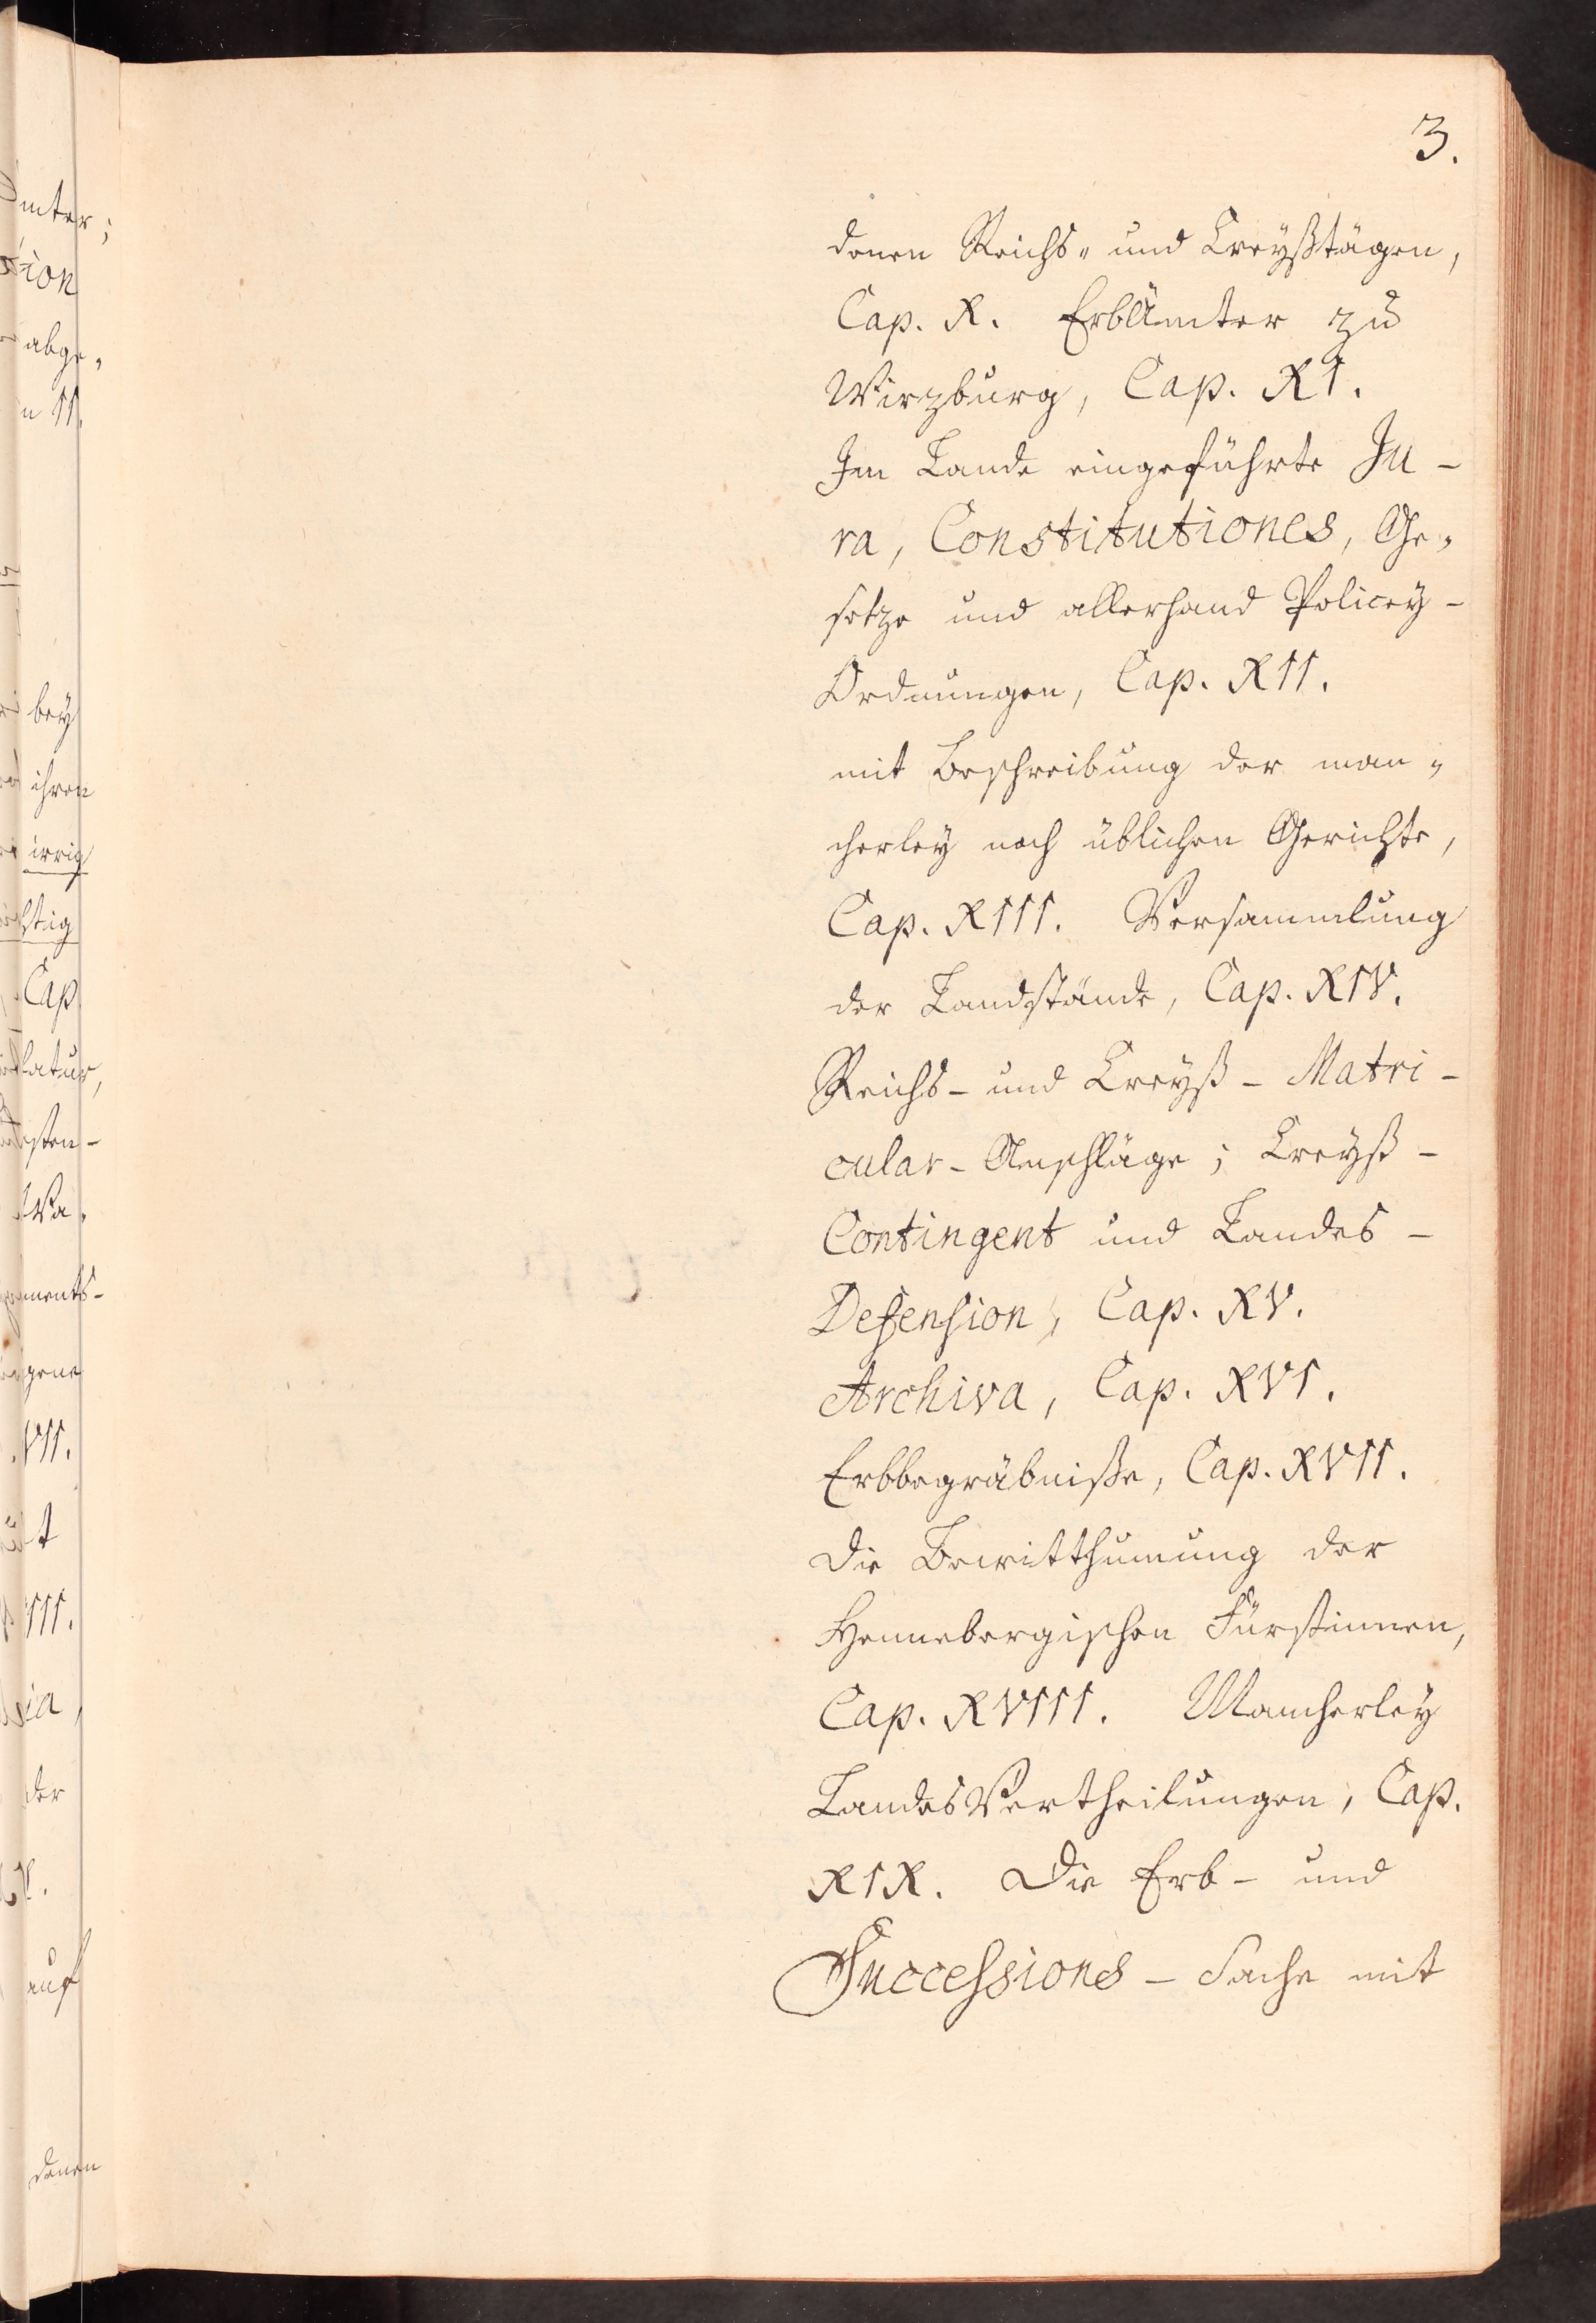 3.
denen Reichs- und Creyßtägen,
Cap. X. ErbÄmter zu
Wirzburg, Cap. XI.
Im Lande eingeführte Ju-
ra, Constitutiones, Ge-
setze und allerhand Policey-
Ordnungen, Cap. XII.
mit Beschreibung der man-
cherley noch üblichen Gerichte,
Cap. XIII. Versammlung
der Landstände, Cap. XIV.
Reichs- und Creyß-Matri-
cular-Anschläge; Creyß-
Contingent und Landes-
Defension, Cap. XV.
Archiva, Cap. XVI.
Erbbegräbniße, Cap. XVII.
Die Bewitthumung der
Hennebergischen Fürstinnen,
Cap. XVIII. Mancherley
LandesVertheilungen, Cap.
XIX. Die Erb- und
Successions-Sache mit